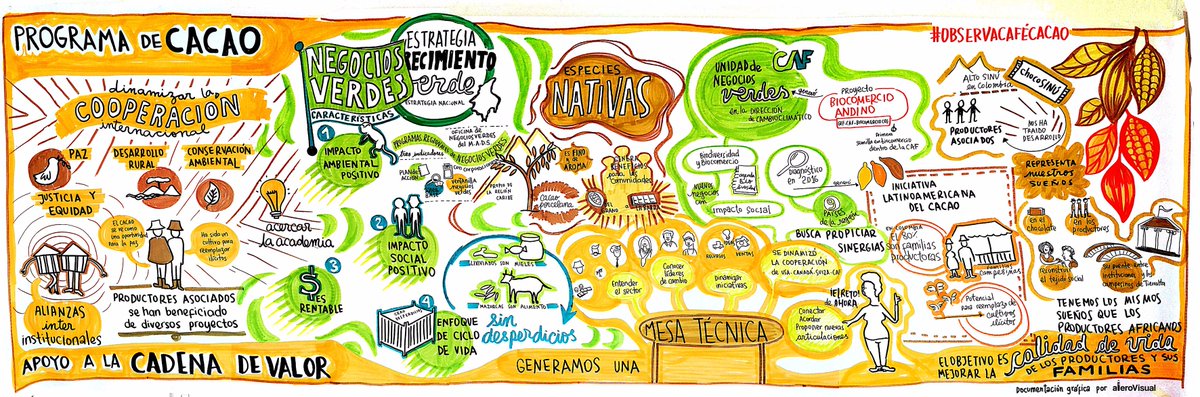 PROGRAMA DE CACAO
dinamizar la
COOPERACIÓN
internacional
PAZ
DESARROLLO
RURAL
CONSERVACIÓN
AMBIENTAL
JUSTICIA Y
EQUIDAD
EL CACAO
se ve como
una oportunidad
para la paz
Ha sido un
cultivo para
reemplazar
ilícitos
acercar
la academia
ALIANZAS
inter
institucionales
PRODUCTORES ASOCIADOS
se han beneficiado
de diversos proyectos
APOYO A LA CADENA DE VALOR
NEGOCIOS
VERDES
CARACTERÍSTICAS
ESTRATEGIA
CRECIMIENTO
verde
ESTRATEGIA NACIONAL
1
IMPACTO
AMBIENTAL
POSITIVO
2
IMPACTO
SOCIAL
POSITIVO
3
ES
RENTABLE
4
ENFOQUE
DE CICLO
DE VIDA
OFICINA de
NEGOCIOS VERDES
DEL M.A.D.S.
NEGOCIOS VERDES
PLAN de
ACCIÓN
negocios
verdes
PROPIO DE
LA REGIÓN
CARIBE
sin
desperdicios
ESPECIES
NATIVAS
ES FINO
y de
AROMA
cacao
porcelana
GENERA
BENEFICIOS
para las
COMUNIDADES
UNIDAD de
NEGOCIOS
verdes
en la DIRECCIÓN
de CAMBIO CLIMÁTICO
CAF
generó
Proyecto
BIOCOMERCIO
ANDINO
dentro de la CAF
Biodiversidad
y Biocomercio
NUEVOS
NEGOCIOS
con
impacto social
Diagnóstico
en 2016
generó
BUSCA PROPICIAR
SINERGIAS
Entender
el sector
Conocer
líderes
de cambio
Dinamizar
iniciativas
RECURSOS
VENTAS
SE DINAMIZÓ LA
COOPERACIÓN
GENERAMOS UNA
MESA TÉCNICA
¡EL RETO!
DE AHORA
Conectar
Acordar
Proponer nuevas
articulaciones
INICIATIVA
LATINOAMERICANA
DEL CACAO
en COLOMBIA
80%
son familias
productoras
campesinas
Potencial
para reemplazo de
cultivos
ilícitos
#OBSERVACAFÉCACAO
ALTO SINÚ
en Colombia
CHOCOSINÚ
PRODUCTORES
ASOCIADOS
NOS HA
TRAIDO
DESARROLLO
REPRESENTA
nuestros
SUEÑOS
en el
chocolate
en los
productores
reconstruir
el tejido social
Su puente entre
instituciones y los
campesinos de Tierralta
TENEMOS LOS MISMOS
SUEÑOS QUE LOS
PRODUCTORES AFRICANOS
EL OBJETIVO ES
MEJORAR LA
calidad de vida
DE LOS PRODUCTORES Y SUS
FAMILIAS
Documentación gráfica por aleroVisual